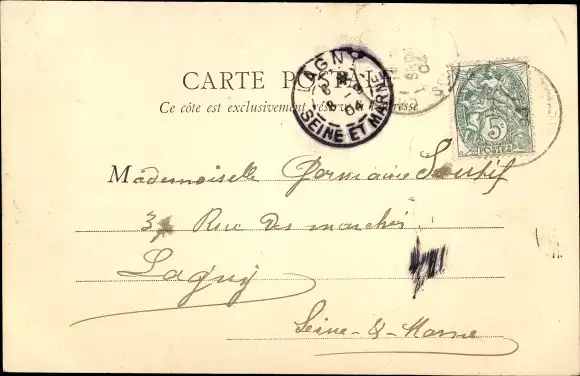 CARTE PO
Ce côte est exclusivement réservé à l'adresse
LAGNY
8
04
SEINE ET MARNE
5c
POSTES
Mademoiselle Germaine
3, Rue des marchés
Lagny
Seine-&-Marne